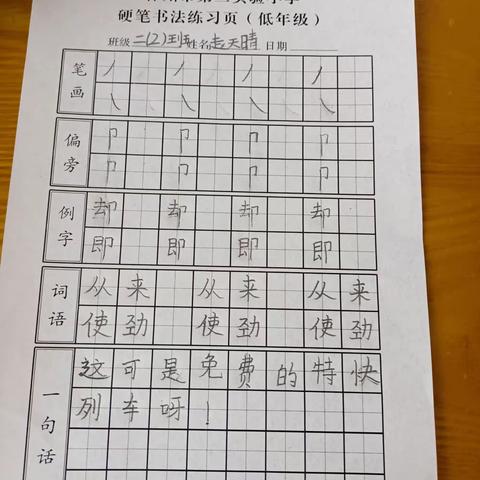 硬笔书法练习页（低年级）
班级二(2)班姓名赵天晴 日期
笔画
丿 丿 丿 丿
㇏ ㇏ ㇏ ㇏
偏旁
卩 卩 卩 卩
卩 卩 卩 卩
例字
却 却 却 却
即 即 即 即
词语
从来 从来 从来
使劲 使劲 使劲
一句话
这可是免费的特快
列车呀！